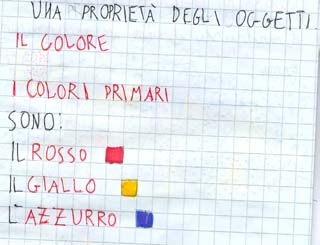 UNA PROPRIETÀ DEGLI OGGETTI
IL COLORE
I COLORI PRIMARI
SONO:
IL ROSSO
IL GIALLO
L'AZZURRO